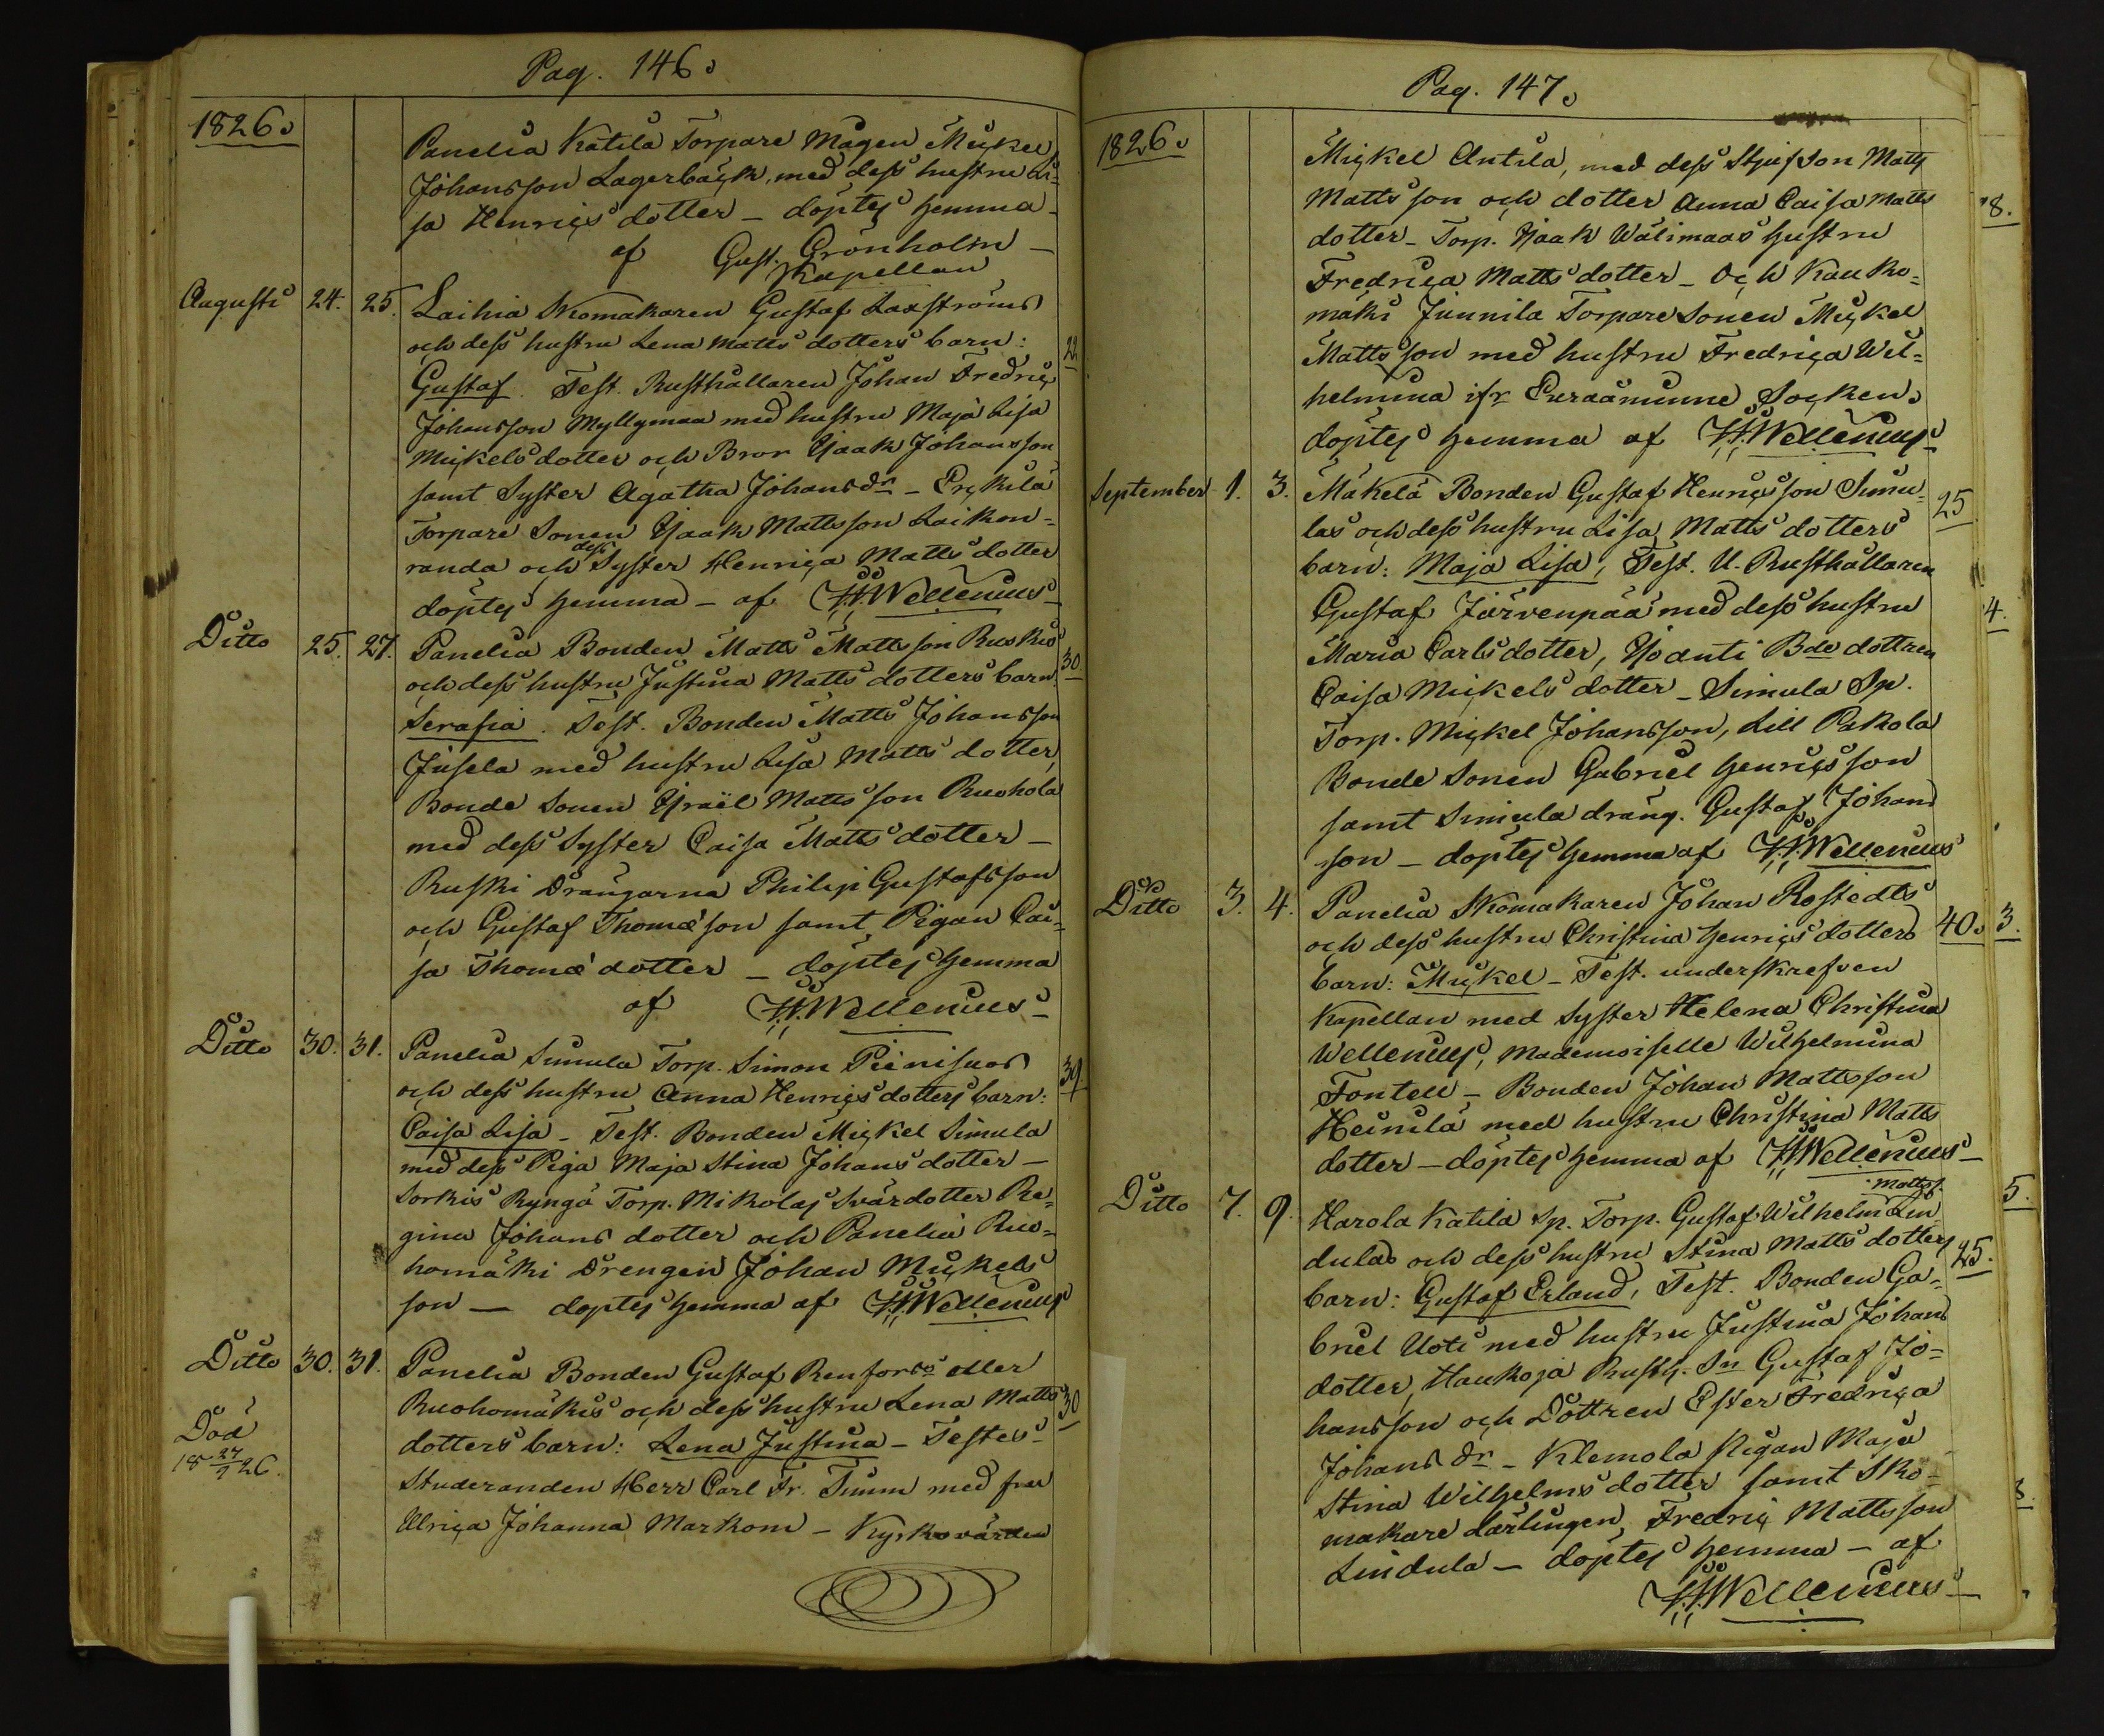 Pag. 146.
1826.
Panelia Katila Torpare Mågen Mickel
Johansson Lagerbäck, med dess hustru Li-
sa Henrics dotter – döptes hemma
af Gust. Grönholm –
Kapellan
Augusti 24. 25. Laihia Skomakaren Gustaf Laxströms
och dess hustru Lena Matts dotters barn: 22
Gustaf. Test. Rusthållaren Johan Fredric
Johansson Myllymaa med hustru Maja Lisa
Mickels dotter och Bror Isaak Johansson
samt Syster Agatha Johans dr – Erckilä
Torpare Sonen Isaak Mattsson Laikon-
randa och dess Syster Henrica Matts dotter
döptes hemma – af H.Wellenius
Ditto 25. 27. Panelia Bonden Matts Mattsson Ruskis
och dess hustru Justina Matts dotters barn: 30
Serafia. Test. Bonden Matts Johansson
Jusela med hustru Lisa Matts dotter,
Bonde Sonen Israël Mattsson Ruohola
med dess Syster Caisa Matts dotter –
Ruski Drängarna Philip Gustafsson
och Gustaf Thomæ son samt Pigan Cai-
sa Thomæ dotter – döptes hemma
af H.Wellenius
Ditto 30. 31. Panelia Simula Torp. Simon Pienisuos
och dess hustru Anna Henrics dotters barn: 39
Caisa Lisa – Test. Bonden Mickel Simula
med dess Piga Maja Stina Johans dotter –
Sorkis Ryngö Torp. Mikolas Svärdotter Re-
gina Johans dotter och Panelia Ruo-
homäki Drengen Johan Mickels
son – döptes hemma af H.Wellenius
Ditto 30. 31. Panelia Bonden Gustaf Renfors eller
Ruohomäkis och dess hustru Lena Matts 30
Död
18 27/9 26.
dotters barn: Lena Justina – Testes
Studeranden Herr Carl Fr. Timm med fru
Ulrica Johanna Markom – Kyrkovärden
Pag. 147.
1826.
Mickel Antila, med dess Stjufson Matts
Mattsson och dotter Anna Caisa Matts
dotter – Torp. Isaak Wälimaas hustru
Fredrica Matts dotter – Och Kauko-
mäki Junnila Torpare Sonen Mickel
Mattsson med hustru Fredrica Wil-
helmina ifr Euraåminne Socken.
döptes hemma af H.Wellenius
September 1. 3. Mäkelä Bonden Gustaf Henricsson Simu-
las och dess hustru Lisa Matts dotters 25
barn: Maja Lisa, Test. U. Rusthållaren
Gustaf Järvenpää med dess hustru
Maria Carls dotter, Yoanti Bde dottren
Caisa Mickels dotter – Simula Sp.
Torp. Mickel Johansson, Lill Pakola
Bonde Sonen Gabriel Henricsson
samt Simula dräng. Gustaf Johans
son – döptes hemma af H.Wellenius
Ditto 3. 4. Panelia Skomakaren Johan Rostedts
och dess hustru Christina Henrics dotters 40.
barn: Mickel – Test. underskrefven
Kapellan med Syster Helena Christina
Wellenius, Mademoiselle Wilhelmina
Fontell – Bonden Johan Mattsson
Heinilä med hustru Christina Matts
dotter – döptes hemma af H.Wellenius
Ditto 7. 9. Harola Katila Sp. Torp. Gustaf Wilhelm Matts. Lin
dulas och dess hustru Stina Matts dotters 25.
barn: Gustaf Erland, Test. Bonden Ga-
briel Uoti med hustru Justina Johans
dotter, Haukoja Rusth. Sn Gustaf Jo-
hansson och Dottren Ester Fredrica
Johans dr – Klemola Pigan Maja
Stina Wilhelms dotter samt Sko-
makare Lärlingen Fredric Mattsson
Lindula – döptes hemma – af
H.Wellenius
8.
4.
3.
5.